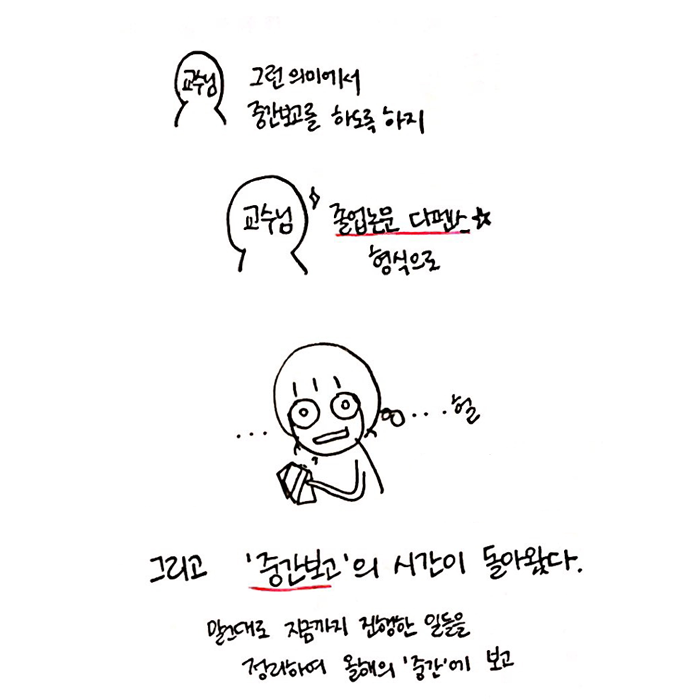 교수님
그런 의미에서
중간보고를 하도록 하지
교수님
졸업논문 디펜스☆
형식으로
...
...헐
그리고 '중간보고'의 시간이 돌아왔다.
말그대로 지금까지 진행한 일들을
정리하여 올해의 '중간'에 보고